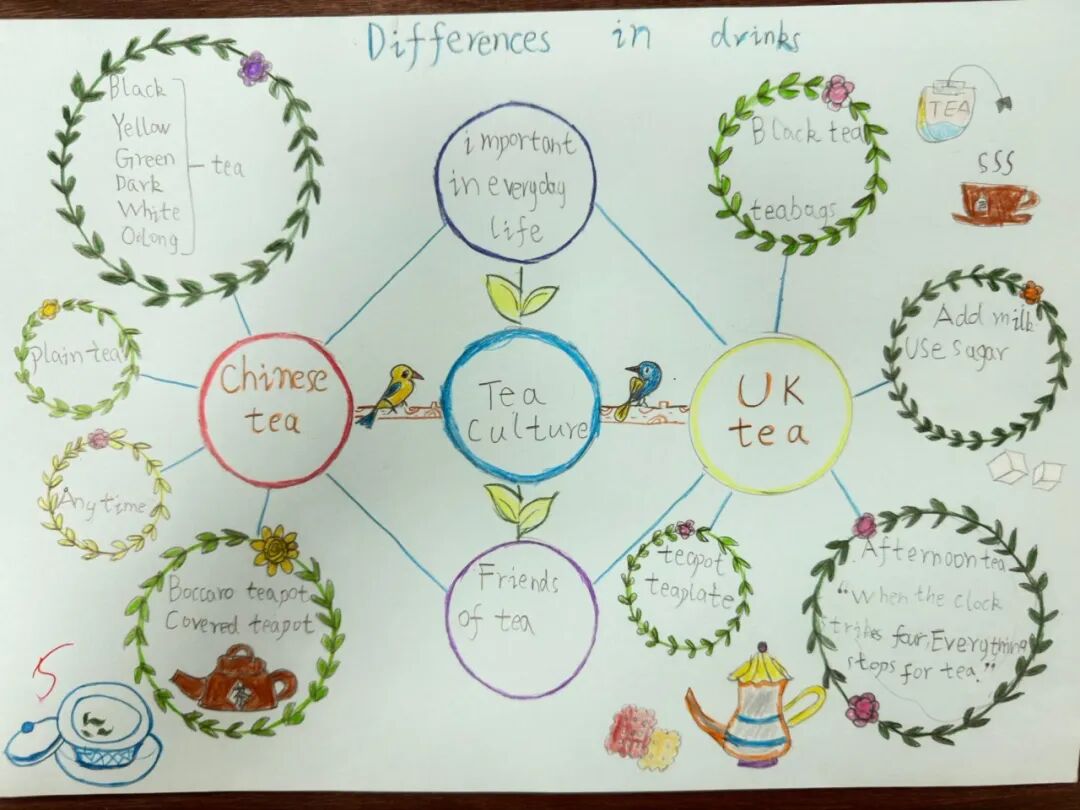 Differences in drinks
Black
Yellow
Green
Dark
White
Oolong
tea
important
in everyday
life
Black tea
teabags
TEA
plain tea
Chinese
tea
Tea
Culture
UK
tea
Add milk
Use sugar
Any time
Boccaro teapot
Covered teapot
茶
Friends
of tea
teapot
teaplate
Afternoon tea
"When the clock
strikes four, Everything
stops for tea."
5